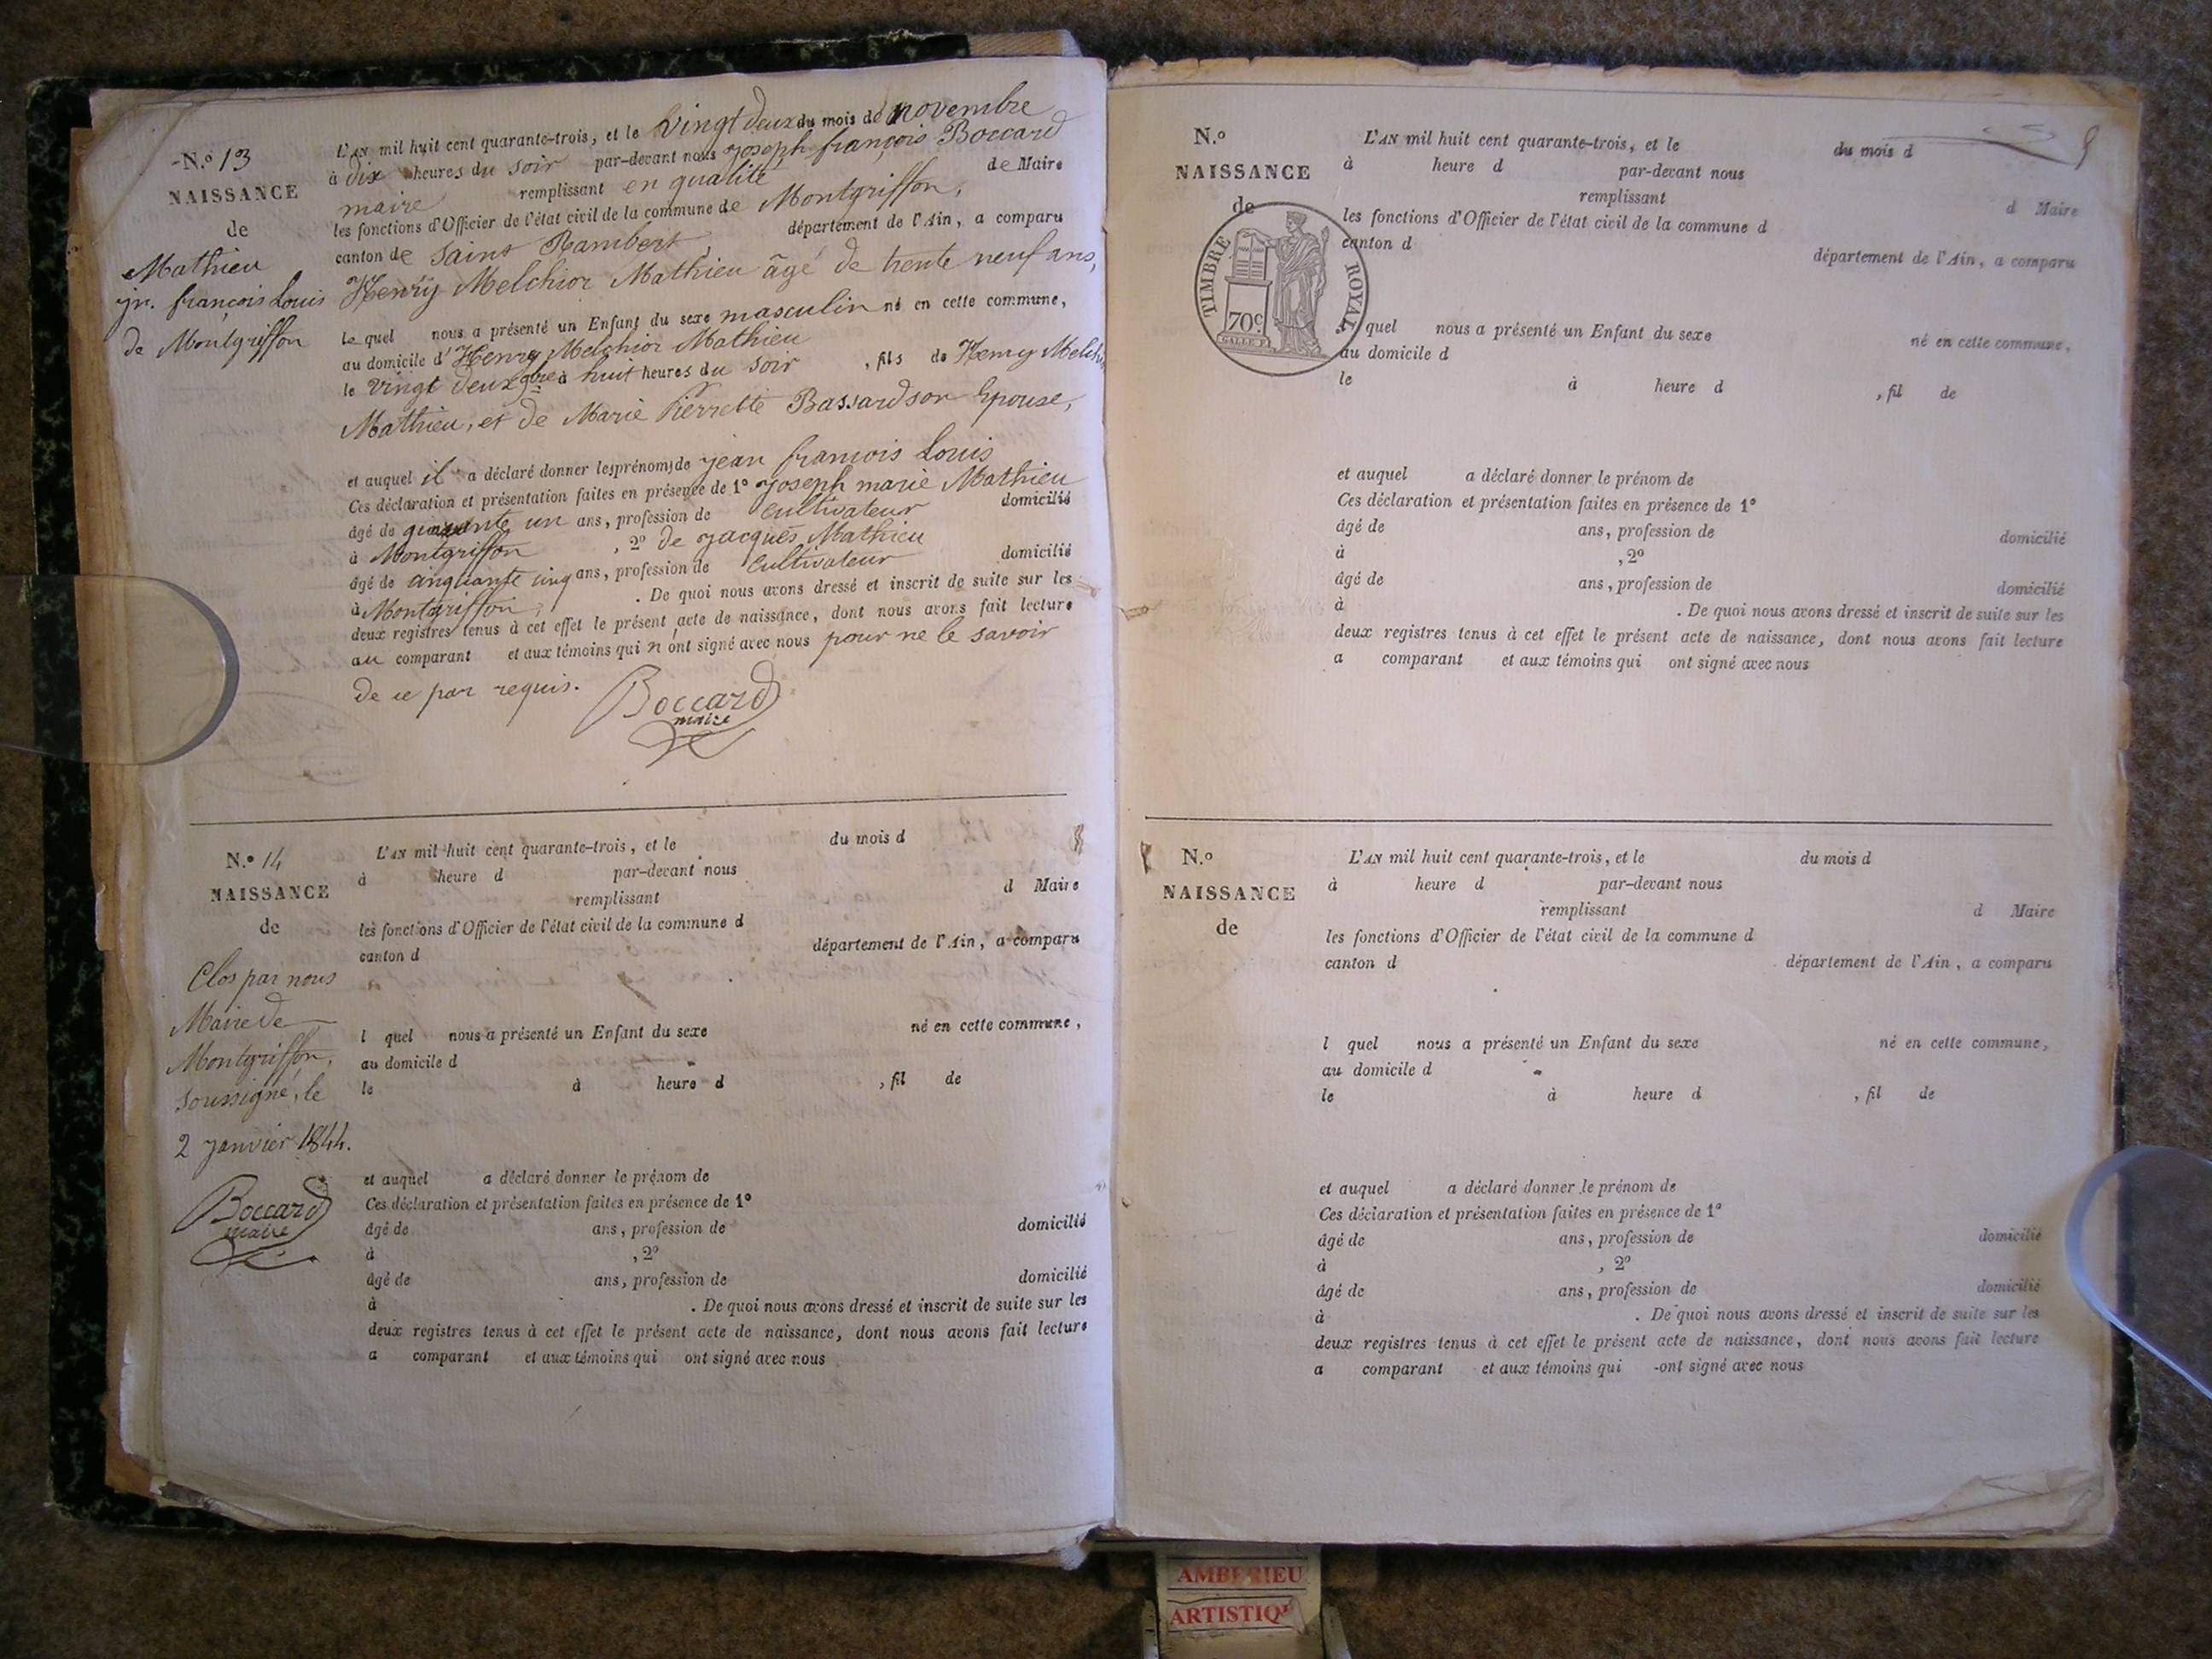 N.o 13
NAISSANCE
de
Mathieu
jn. françois Louis
de Montgriffon
L'AN mil huit cent quarante-trois, et le Vingt deux du mois de novembre
à dix heures du soir par-devant nous joseph françois Boccard
maire remplissant en qualité de Maire
les fonctions d'Officier de l'état civil de la commune de Montgriffon,
canton de Saint Rambert, département de l'Ain, a comparu
Henry Melchior Mathieu âgé de trente neuf ans,
le quel nous a présenté un Enfant du sexe masculin né en cette commune,
au domicile d'Henry Melchior Mathieu
le Vingt deux 9bre à huit heures du soir , fils de Henry Melchior
Mathieu, et de Marie Pierrette Bassard son Epouse,
et auquel il a déclaré donner les prénoms de jean françois Louis
Ces déclaration et présentation faites en présence de 1° joseph marie Mathieu
âgé de un ans, profession de Cultivateur domicilié
à Montgriffon , 2° de jacques Mathieu
âgé de cinquante cinq ans, profession de Cultivateur domicilié
à Montgriffon, . De quoi nous avons dressé et inscrit de suite sur les
deux registres tenus à cet effet le présent acte de naissance, dont nous avons fait lecture
au comparant et aux témoins qui n'ont signé avec nous pour ne le savoir
de ce par requis.
Boccard
maire
N.o 14
NAISSANCE
de
Clos par nous
Maire de
Montgriffon,
soussigné, le
2 janvier 1844.
Boccard
maire
L'AN mil huit cent quarante-trois, et le du mois d
à heure d par-devant nous
remplissant d Maire
les fonctions d'Officier de l'état civil de la commune d
canton d département de l'Ain, a comparu
l quel nous a présenté un Enfant du sexe né en cette commune,
au domicile d
le à heure d , fil de
et auquel a déclaré donner le prénom de
Ces déclaration et présentation faites en présence de 1°
âgé de ans, profession de domicilié
à , 2°
âgé de ans, profession de domicilié
à . De quoi nous avons dressé et inscrit de suite sur les
deux registres tenus à cet effet le présent acte de naissance, dont nous avons fait lecture
a comparant et aux témoins qui ont signé avec nous
N.o
NAISSANCE
de
TIMBRE ROYAL
70c
L'AN mil huit cent quarante-trois, et le du mois d
à heure d par-devant nous
remplissant d Maire
les fonctions d'Officier de l'état civil de la commune d
canton d département de l'Ain, a comparu
quel nous a présenté un Enfant du sexe né en cette commune,
au domicile d
le à heure d , fil de
et auquel a déclaré donner le prénom de
Ces déclaration et présentation faites en présence de 1°
âgé de ans, profession de domicilié
à , 2°
âgé de ans, profession de domicilié
à . De quoi nous avons dressé et inscrit de suite sur les
deux registres tenus à cet effet le présent acte de naissance, dont nous avons fait lecture
a comparant et aux témoins qui ont signé avec nous
N.o
NAISSANCE
de
L'AN mil huit cent quarante-trois, et le du mois d
à heure d par-devant nous
remplissant d Maire
les fonctions d'Officier de l'état civil de la commune d
canton d département de l'Ain, a comparu
l quel nous a présenté un Enfant du sexe né en cette commune,
au domicile d
le à heure d , fil de
et auquel a déclaré donner le prénom de
Ces déclaration et présentation faites en présence de 1°
âgé de ans, profession de domicilié
à , 2°
âgé de ans, profession de domicilié
à . De quoi nous avons dressé et inscrit de suite sur les
deux registres tenus à cet effet le présent acte de naissance, dont nous avons fait lecture
a comparant et aux témoins qui ont signé avec nous
AMBERIEU
ARTISTIQ